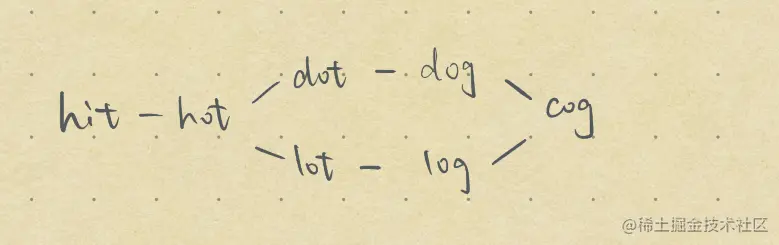 dot - dog
hit - hot
cog
lot - log
@稀土掘金技术社区